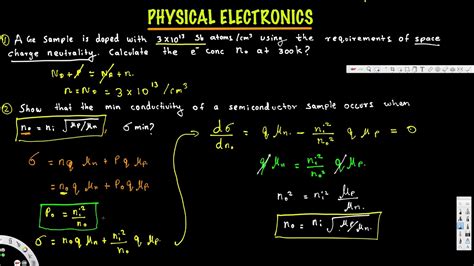 PHYSICAL ELECTRONICS
① A Ge Sample is doped with 3×10¹³ Sb atoms/cm³ using the requirements of space
charge neutrality. Calculate the e⁻ conc n₀ at 300K?
n = N_D = 3 × 10¹³ /cm³
② Show that the min conductivity of a semiconductor sample occurs when
n₀ = nᵢ √μp/μn , σ min?
σ = nq μn + p q μp
= n₀ q μn + p₀ q μp
p₀ = nᵢ²/n₀
σ = n₀ q μn + nᵢ²/n₀ q μp
dσ/dn₀ = q μn - nᵢ²/n₀² q μp = 0
q μn = nᵢ²/n₀² q μp
n₀² = nᵢ² μp/μn
n₀ = nᵢ √μp/μn